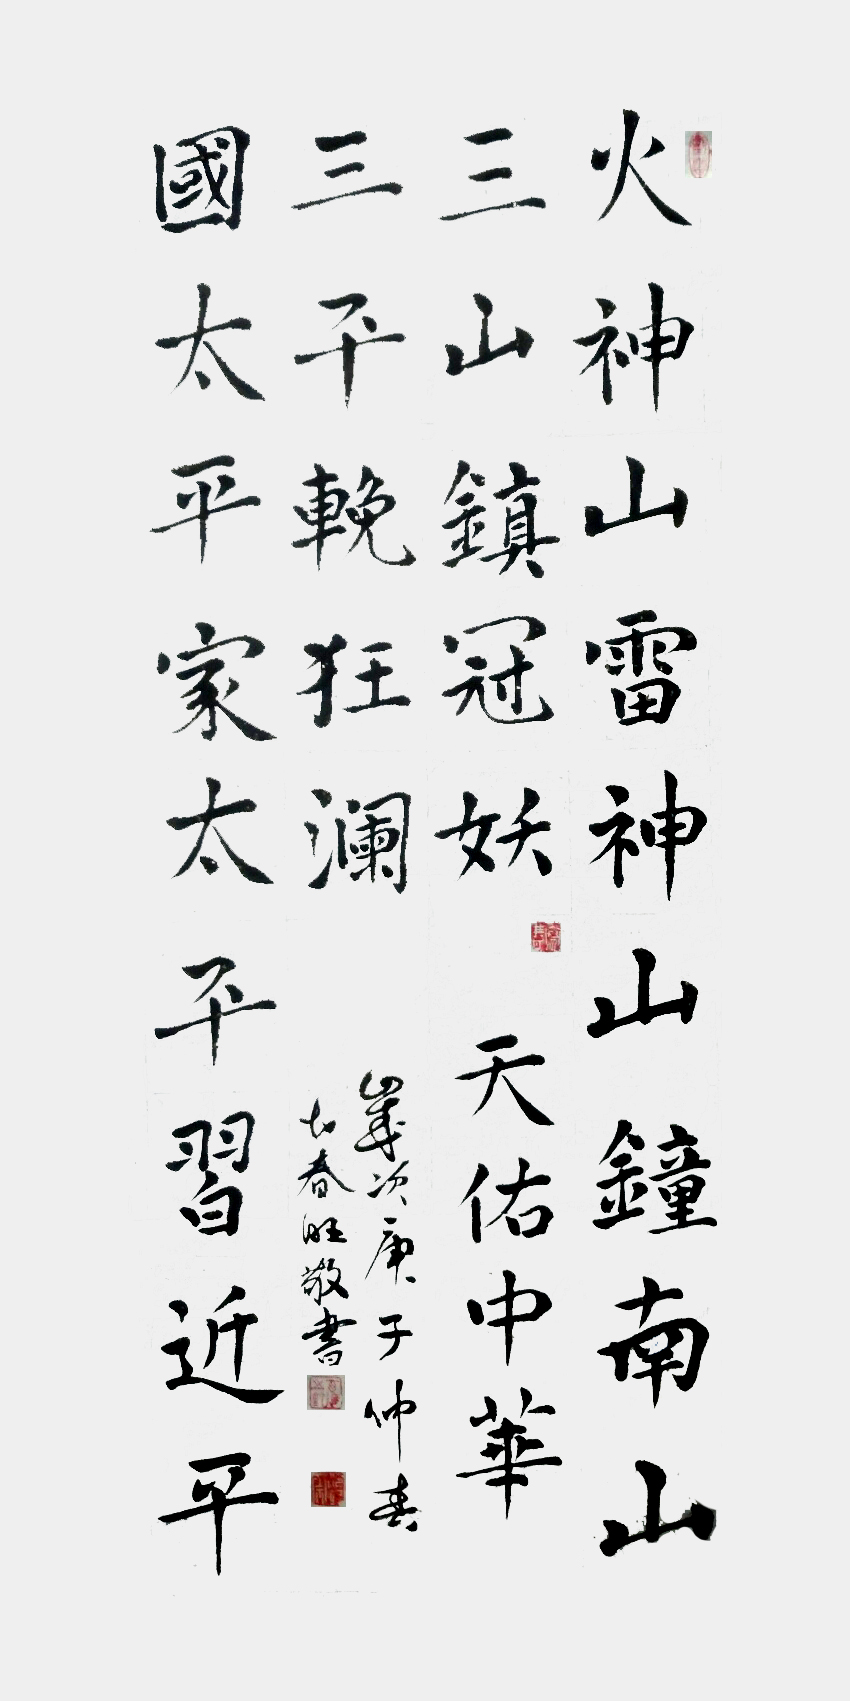 火神山雷神山鐘南山
三山鎮冠妖
天佑中華
三平輓狂澜
國太平家太平習近平
歲次庚子仲春
长春旺敬書